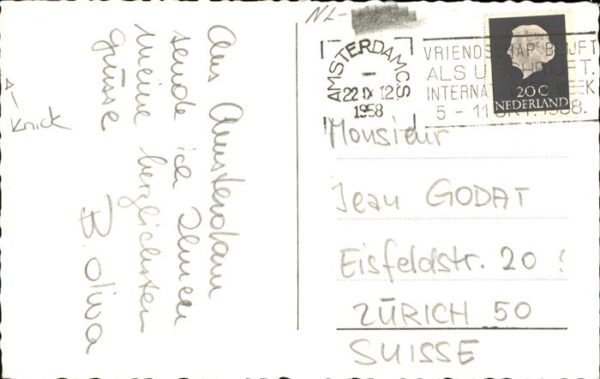 NL-
Knick
Aus Amsterdam
sende ich Ihnen
meine herzlichsten
Grüsse
B. Oliva
AMSTERDAM CS
22 IX 12
1958
VRIENDSCHAP BLIJFT
ALS U SCHRIJFT.
INTERNAT. WEEK
5 - 11 OKT. 1958.
20 C
NEDERLAND
Monsieur
Jean GODAT
Eisfeldstr. 20 !
ZÜRICH 50
SUISSE